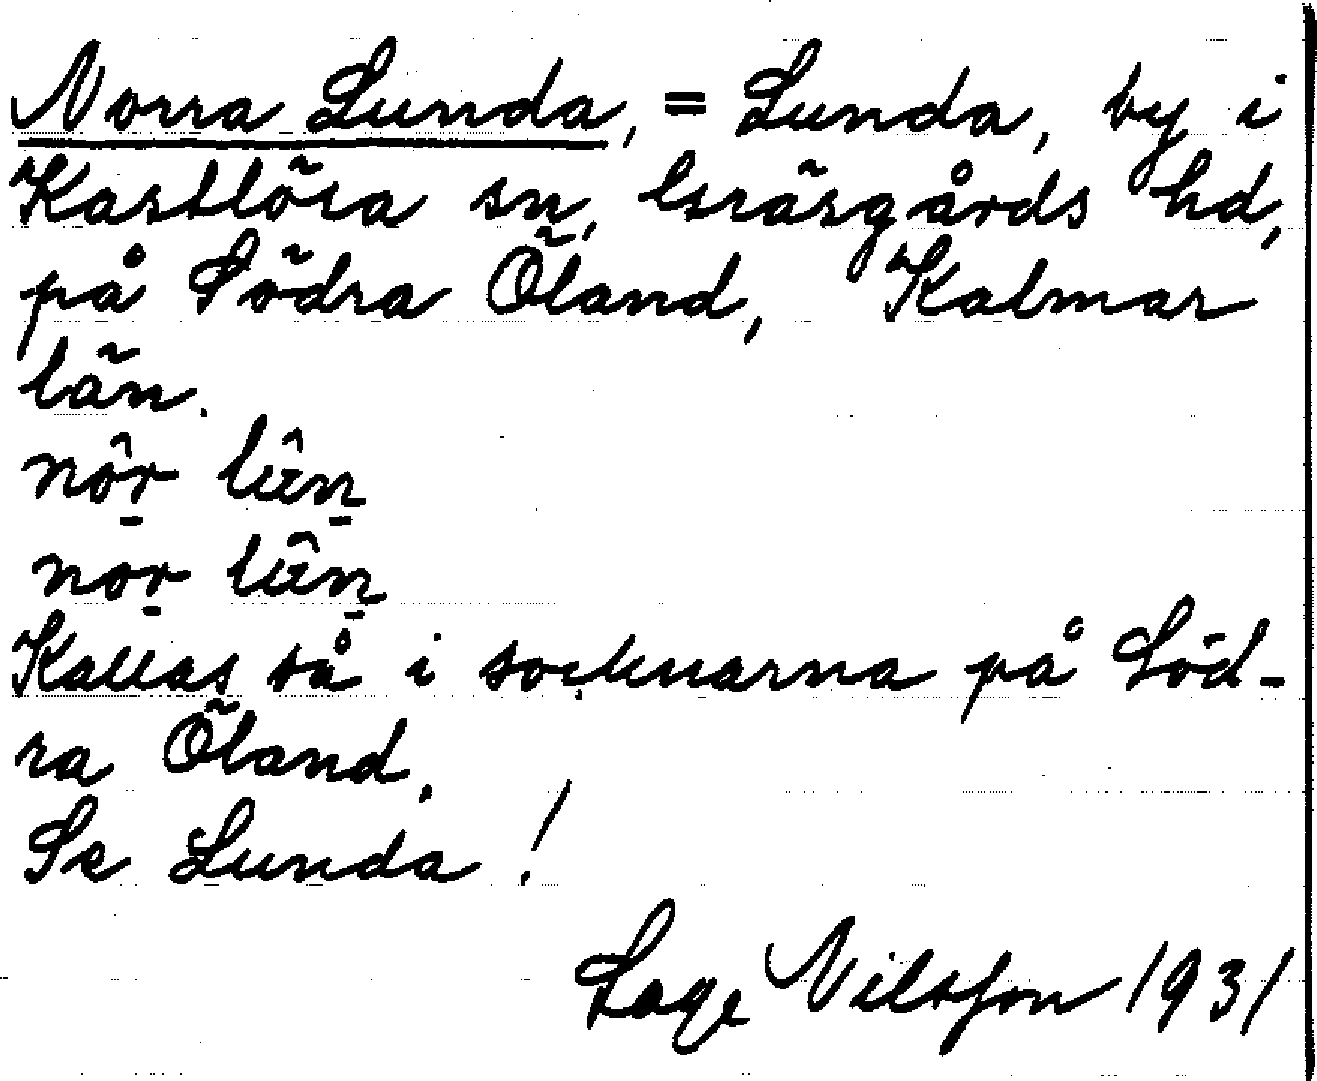 Norra Lunda, = Lunda, by i
Kastlösa sn, Gräsgårds hd,
på Södra Öland, Kalmar
län.
nôr
nor
Kallas så i socknarna på Söd-
ra Öland.
Se Lunda!
Lage Nilsson 1931